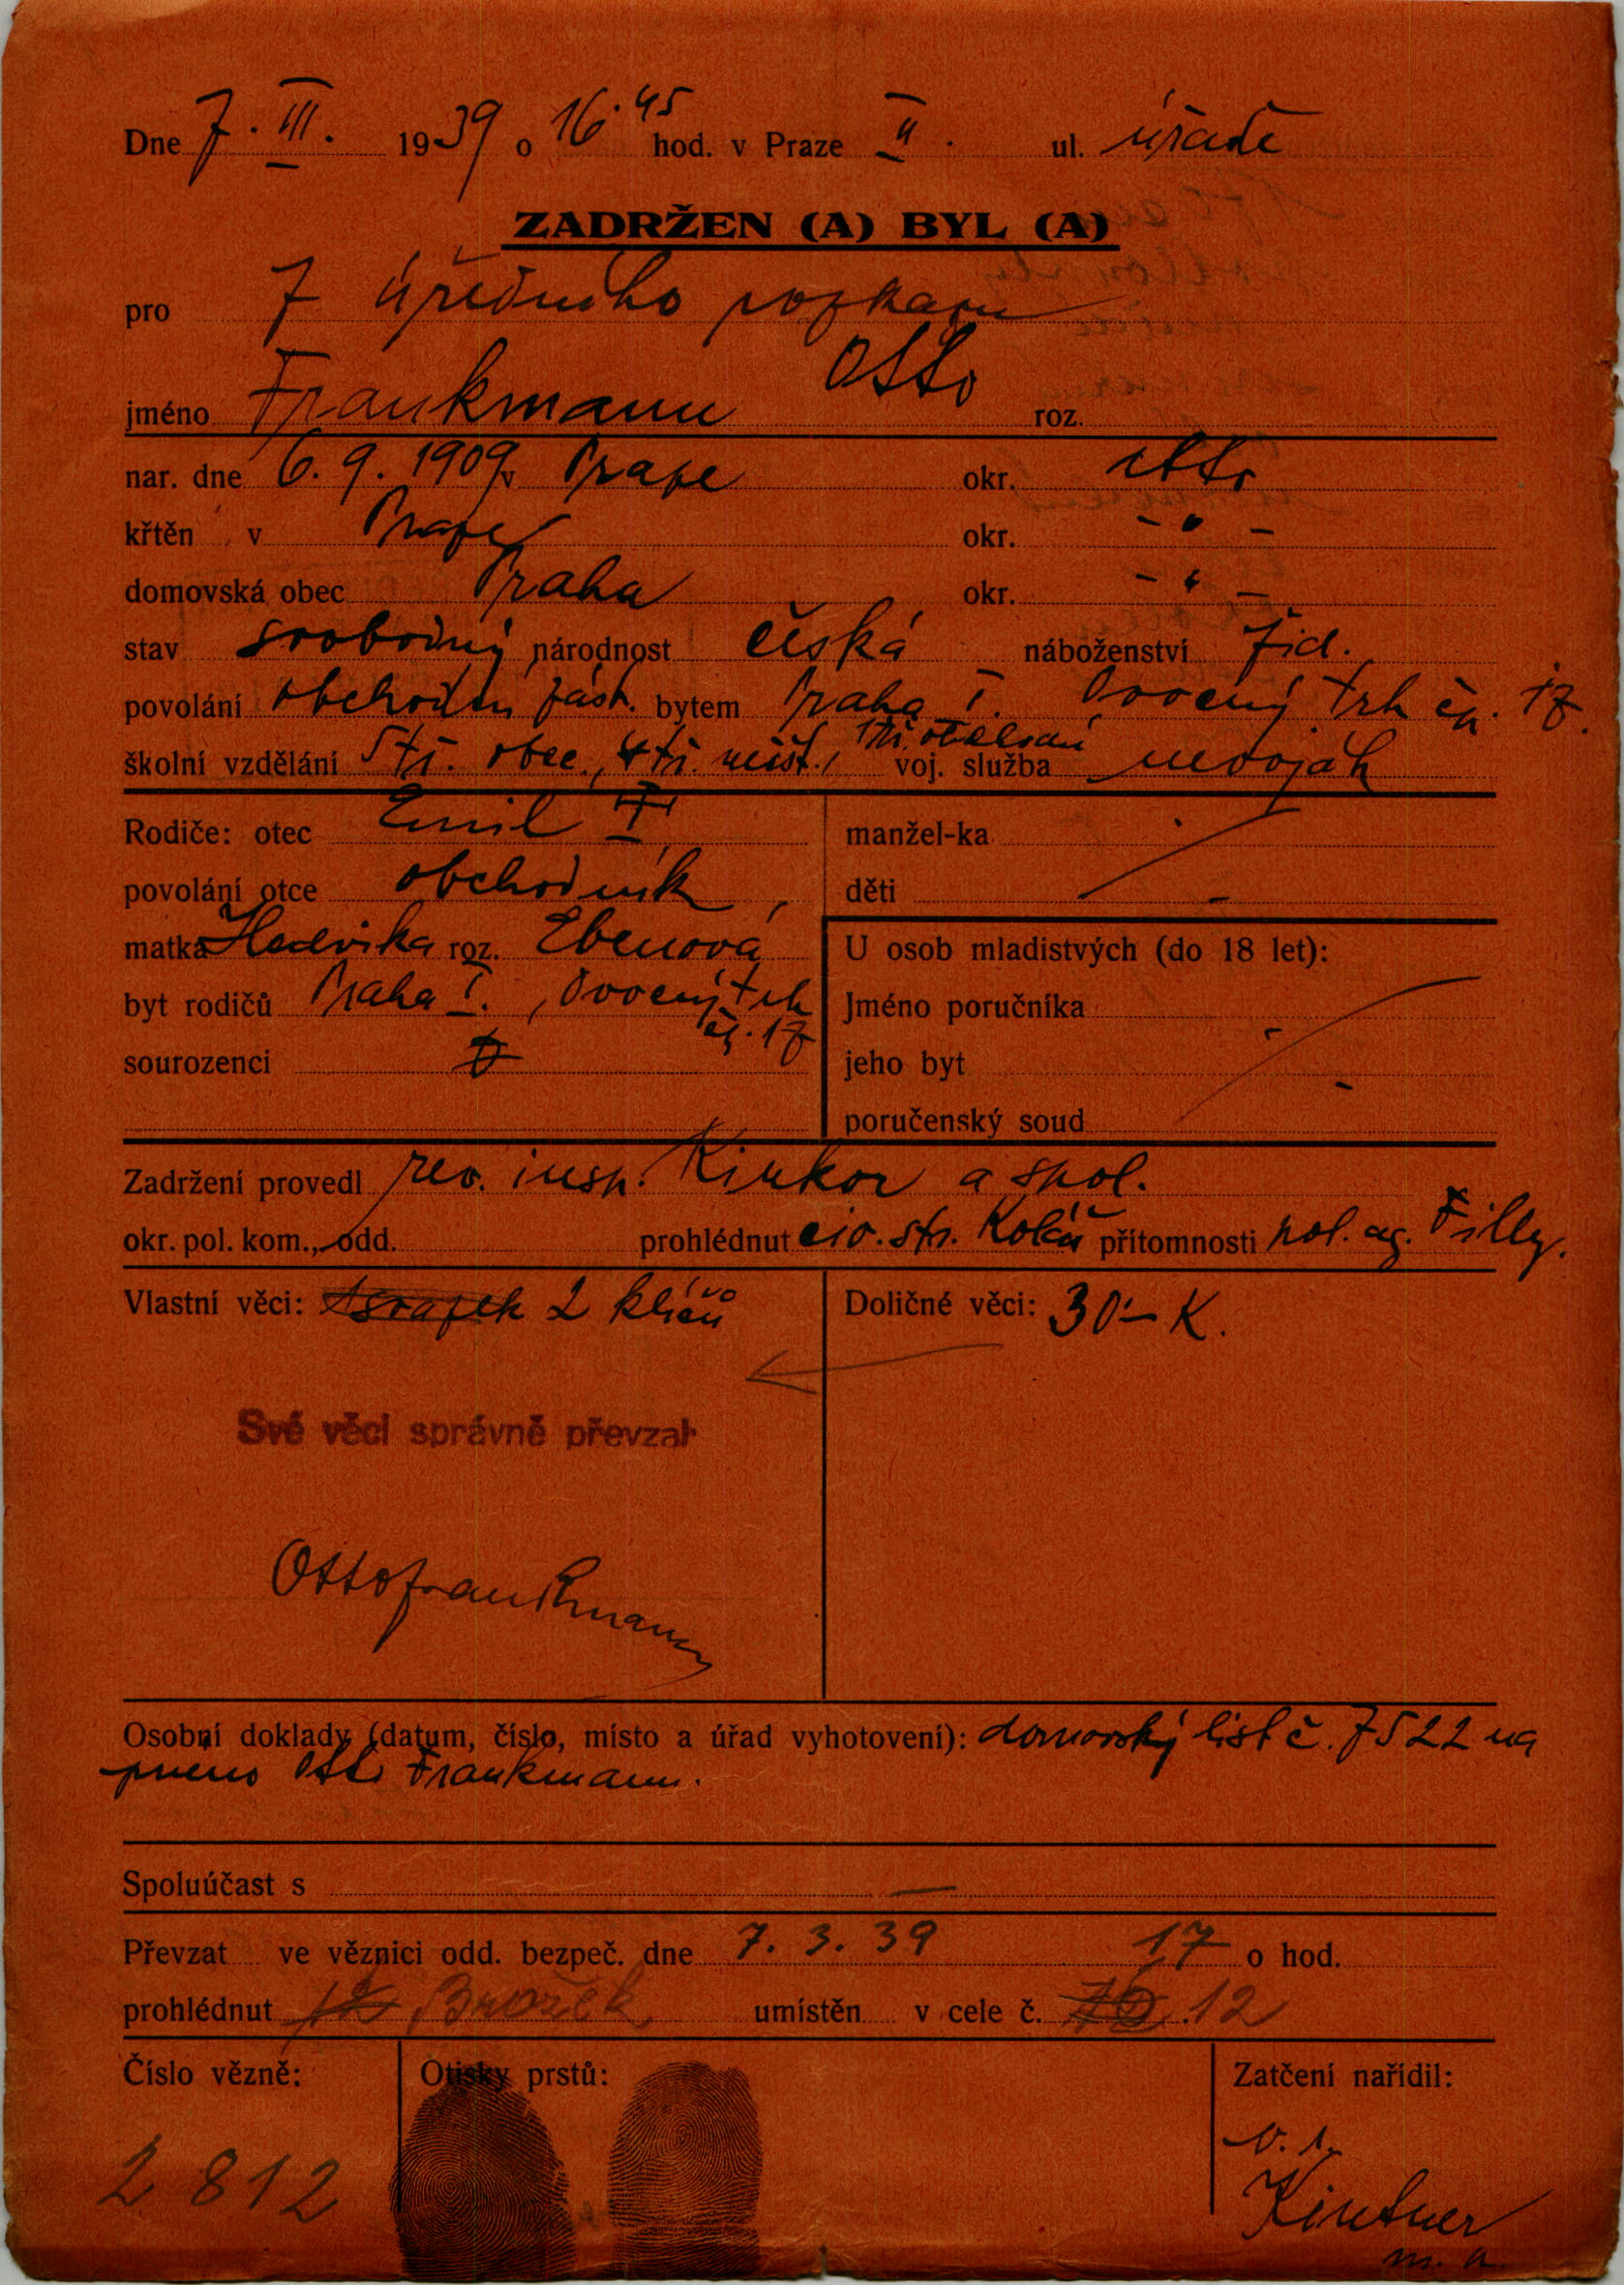 Dne 7. III. 1939 o 16.45 hod. v Praze II. ul. úřadě
ZADRŽEN (A) BYL (A)
pro Z úředního rozkazu
jméno Frankmann Otto roz.
nar. dne 6. 9. 1909 v Praze okr. dtto
křtěn v Praze okr. - " -
domovská obec Praha okr. - " -
stav svobodný národnost česká náboženství žid.
povolání obchodní zást. bytem Praha I. Ovocný trh čp. 17.
školní vzdělání 5 tř. obec., 4 tř. měšť., voj. služba nevoják
Rodiče: otec Emil
manžel-ka
povolání otce obchodník,
děti -
matka Hedvika roz. Ebenová
U osob mladistvých (do 18 let):
byt rodičů Praha I., Ovocný trh
čp. 17
Jméno poručníka
sourozenci
jeho byt -
poručenský soud
Zadržení provedl rev. insp. Kinkor a spol.
okr. pol. kom., odd. prohlédnut civ. str. Kolář přítomnosti pol. ag. Filly.
Vlastní věci: 2 klíčů
Doličné věci: 30'- K.
Své věci správně převzal
Otto Frankmann
Osobní doklady (datum, číslo, místo a úřad vyhotovení): domovský list č. 7522 na
jméno Otto Frankmann.
Spoluúčast s —
Převzat ve věznici odd. bezpeč. dne 7. 3. 39 17 o hod.
prohlédnut Brožek umístěn v cele č. 12
Číslo vězně: Otisky prstů: Zatčení nařídil:
2812
v. r.
Kintner